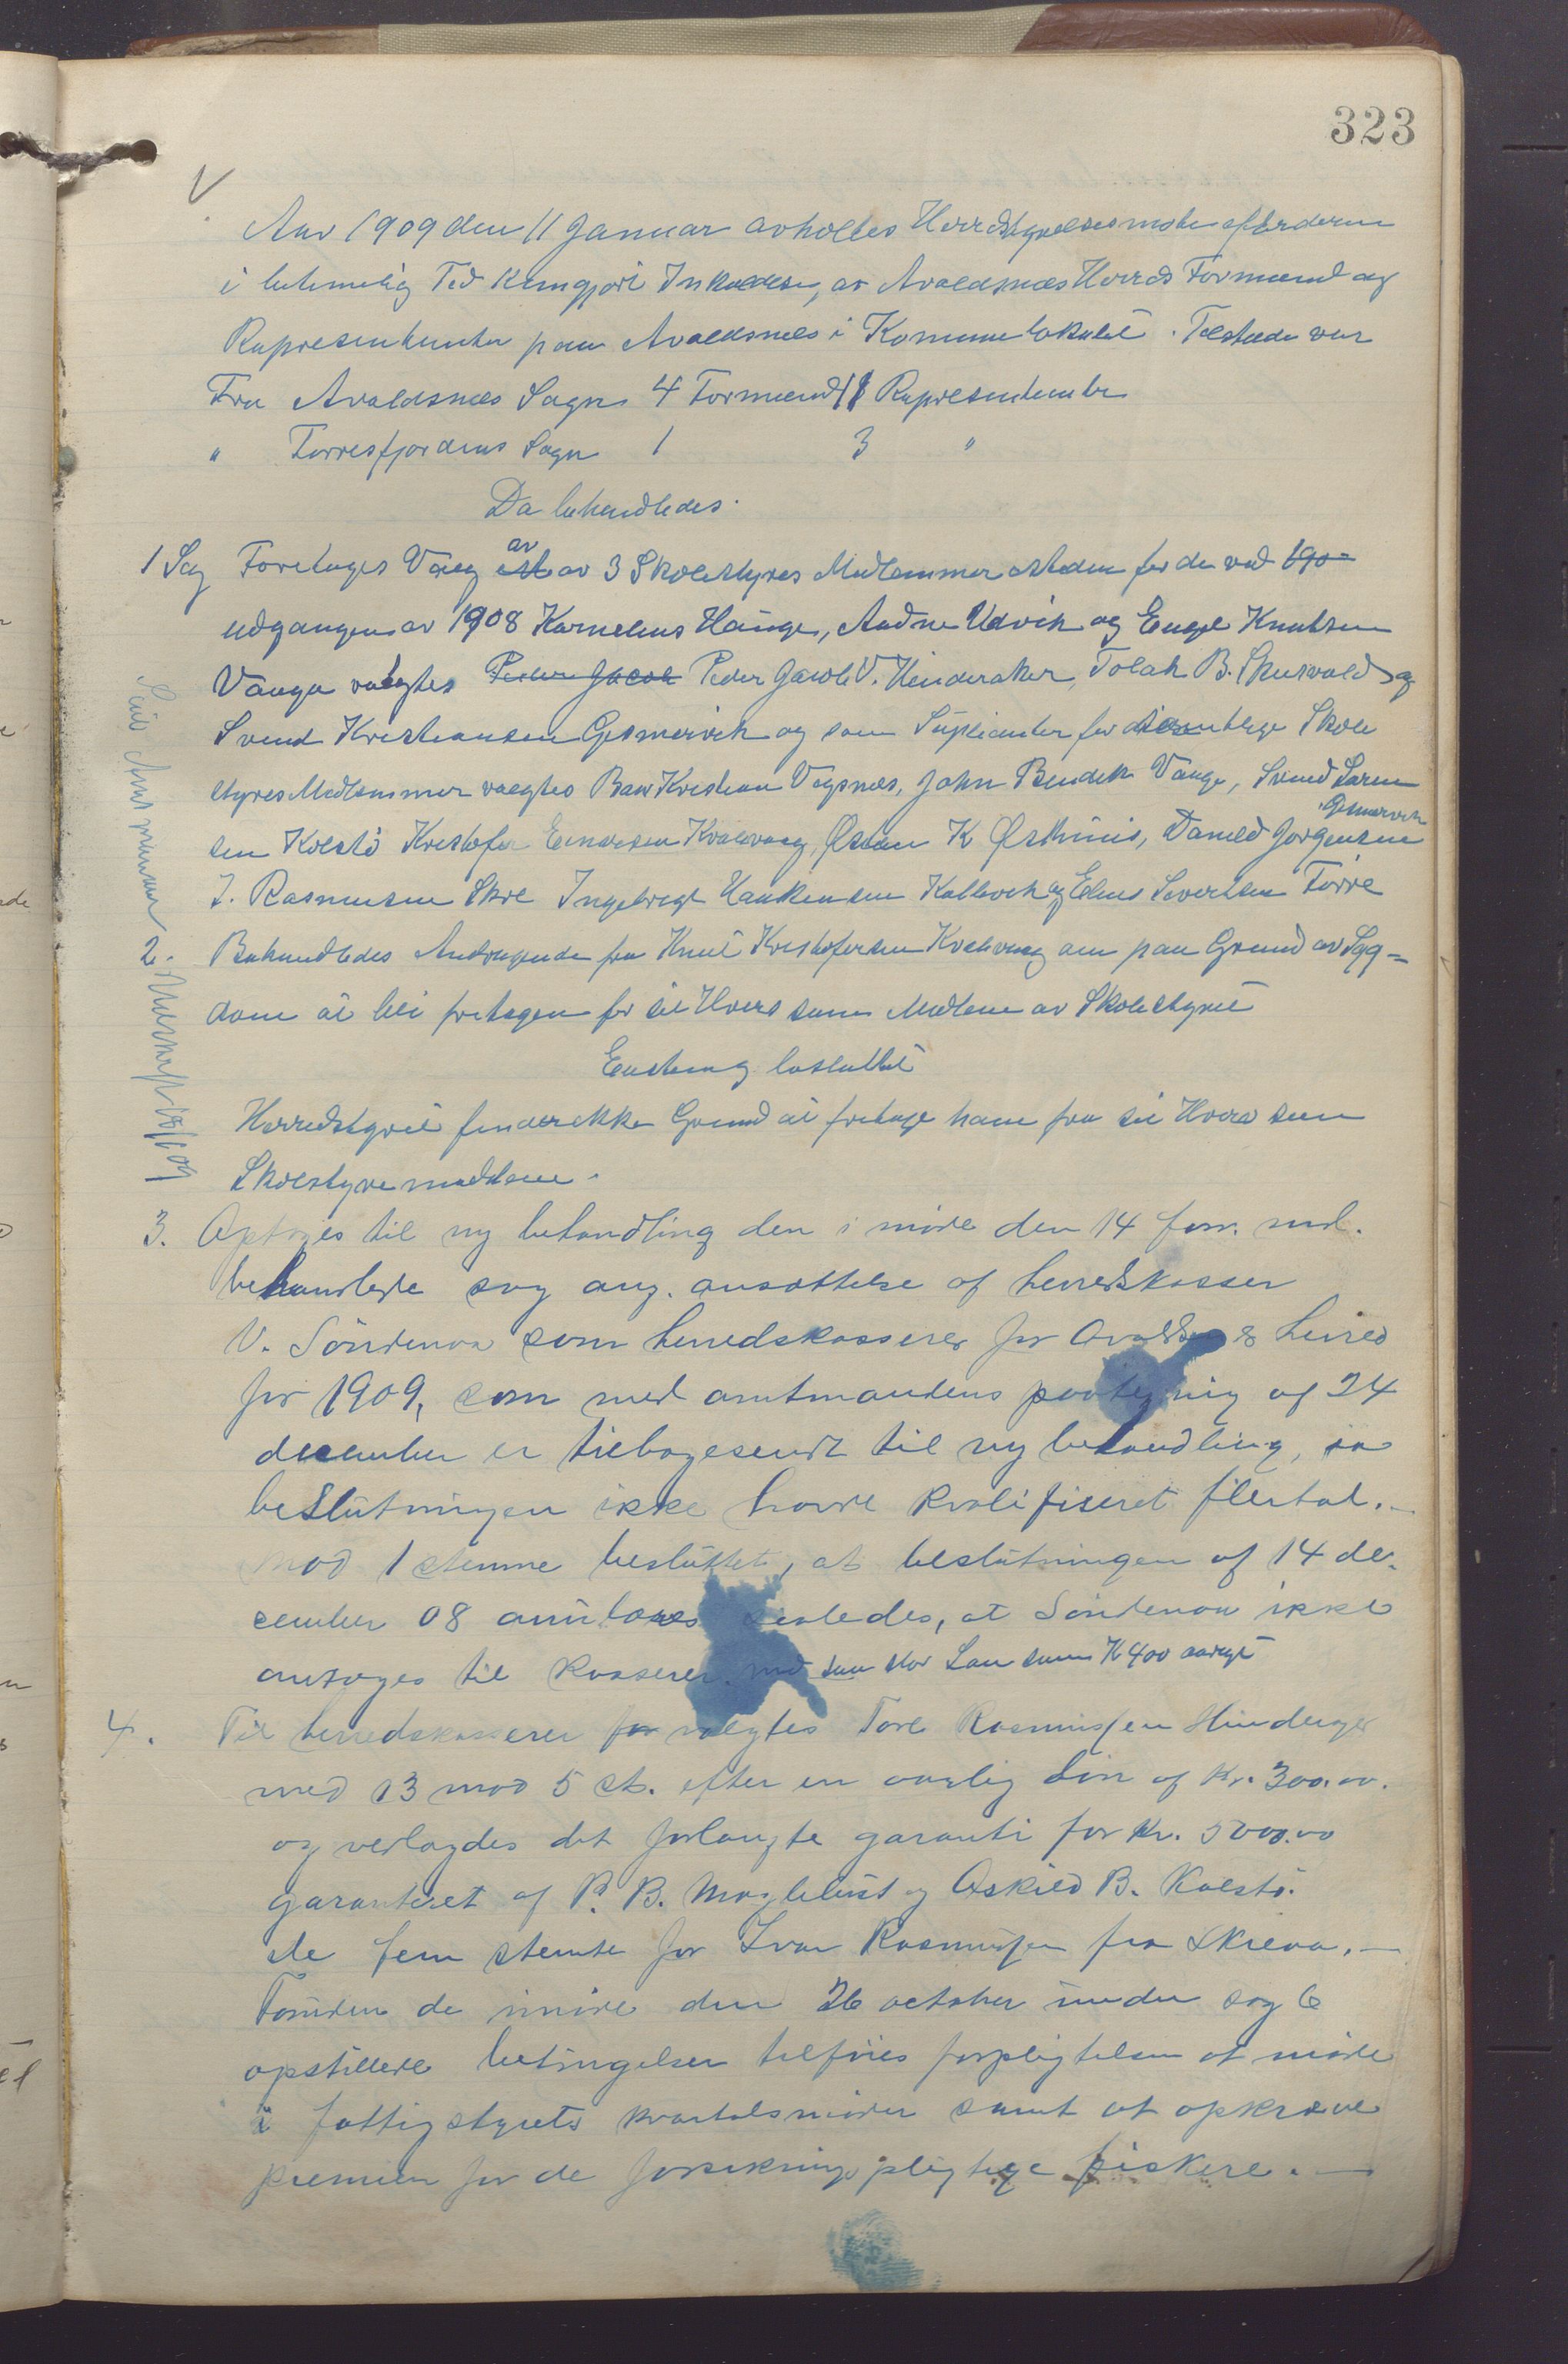 323
V
Aar 1909 den 11 Januar avholtes Herredstyrelsesmøte efterderom
i betimelig Tid kungjort Inkaldelse, av Avaldsnes Herreds Formænd og
Representanter paa Avaldsnes i Komunelokalet. Tilstede var
Fra Avaldsnes Sogn 4 Formænd 11 Representanter
" Torresfjordens Sogn 1 3 "
Da behandledes.
1 Sag Foretages Valg av av 3 Skolestyres Medlemmer isteden for de ved 190
udgangen av 1908 Kornelius Hauge, Audne Udvik og Engel Knutsen
Vaage valgtes Peder Jacob Peder Jacob V. Hinderaker, Tolak B. Skeisvold og
Svend Kristiansen Gismervik og som Supleanter for samtlige Skole
styres Medlemmer valgtes Baar Kristian Vagsnes, John Bendik Vaage, Svend Lauren
sen Kolstö Kristofer Einarsen Kvalavaag, Østen K Østhuus, Daniel Jørgensen Gismervik
J. Rasmussen Skre Ingebregt Haakensen Kallevik og Elias Sivertsen Førre
2. Behandledes Andragende fra Knut Kristofersen Kvalavaag om paa Grund av Syg=
dom at bli fritagen for sit Hverv som Medlem av Skolestyret
Enstemig besluttet
Herredstyret finder ikke Grund at fritage ham fra sit Hverv som
Skolestyremedlem.
Udskrift 18/1 09
3. Optoges til ny behandling den i möde den 14 forr. md.
behandlede sag ang. ansættelse af herredskasser
V. Söndenaa som herredskasserer for Avaldsnes herred
for 1909, som med amtmandens paategning af 24
december er tilbagesendt til ny behandling, da
beslutningen ikke havde kvalifiseret flertal.—
Mod 1 stemme besluttet, at beslutningen af 14 de-
cember 08 anuleres saaledes, at Söndenaa ikke
antages til kasserer med saa stor Løn som K 400 aarligt
4. Til herredskasserer for valgtes Tore Rasmussen Hinderager
med 13 mod 5 st. efter en aarlig lön af Kr. 300.00.
og vedlagdes det forlangte garanti for Kr. 5000.00
garanteret af P. B. Mogleiust og Askild B. Kolstö.
de fem stemte for Ivar Rasmussen fra Skreaa.—
Foruden de i möde den 26 october under sag 6
opstillede betingelser tilföies forpligtelsen at möde
i fattigstyrets kvartalsmöder samt at opkræve
premien for de forsikringspligtige fiskere.—